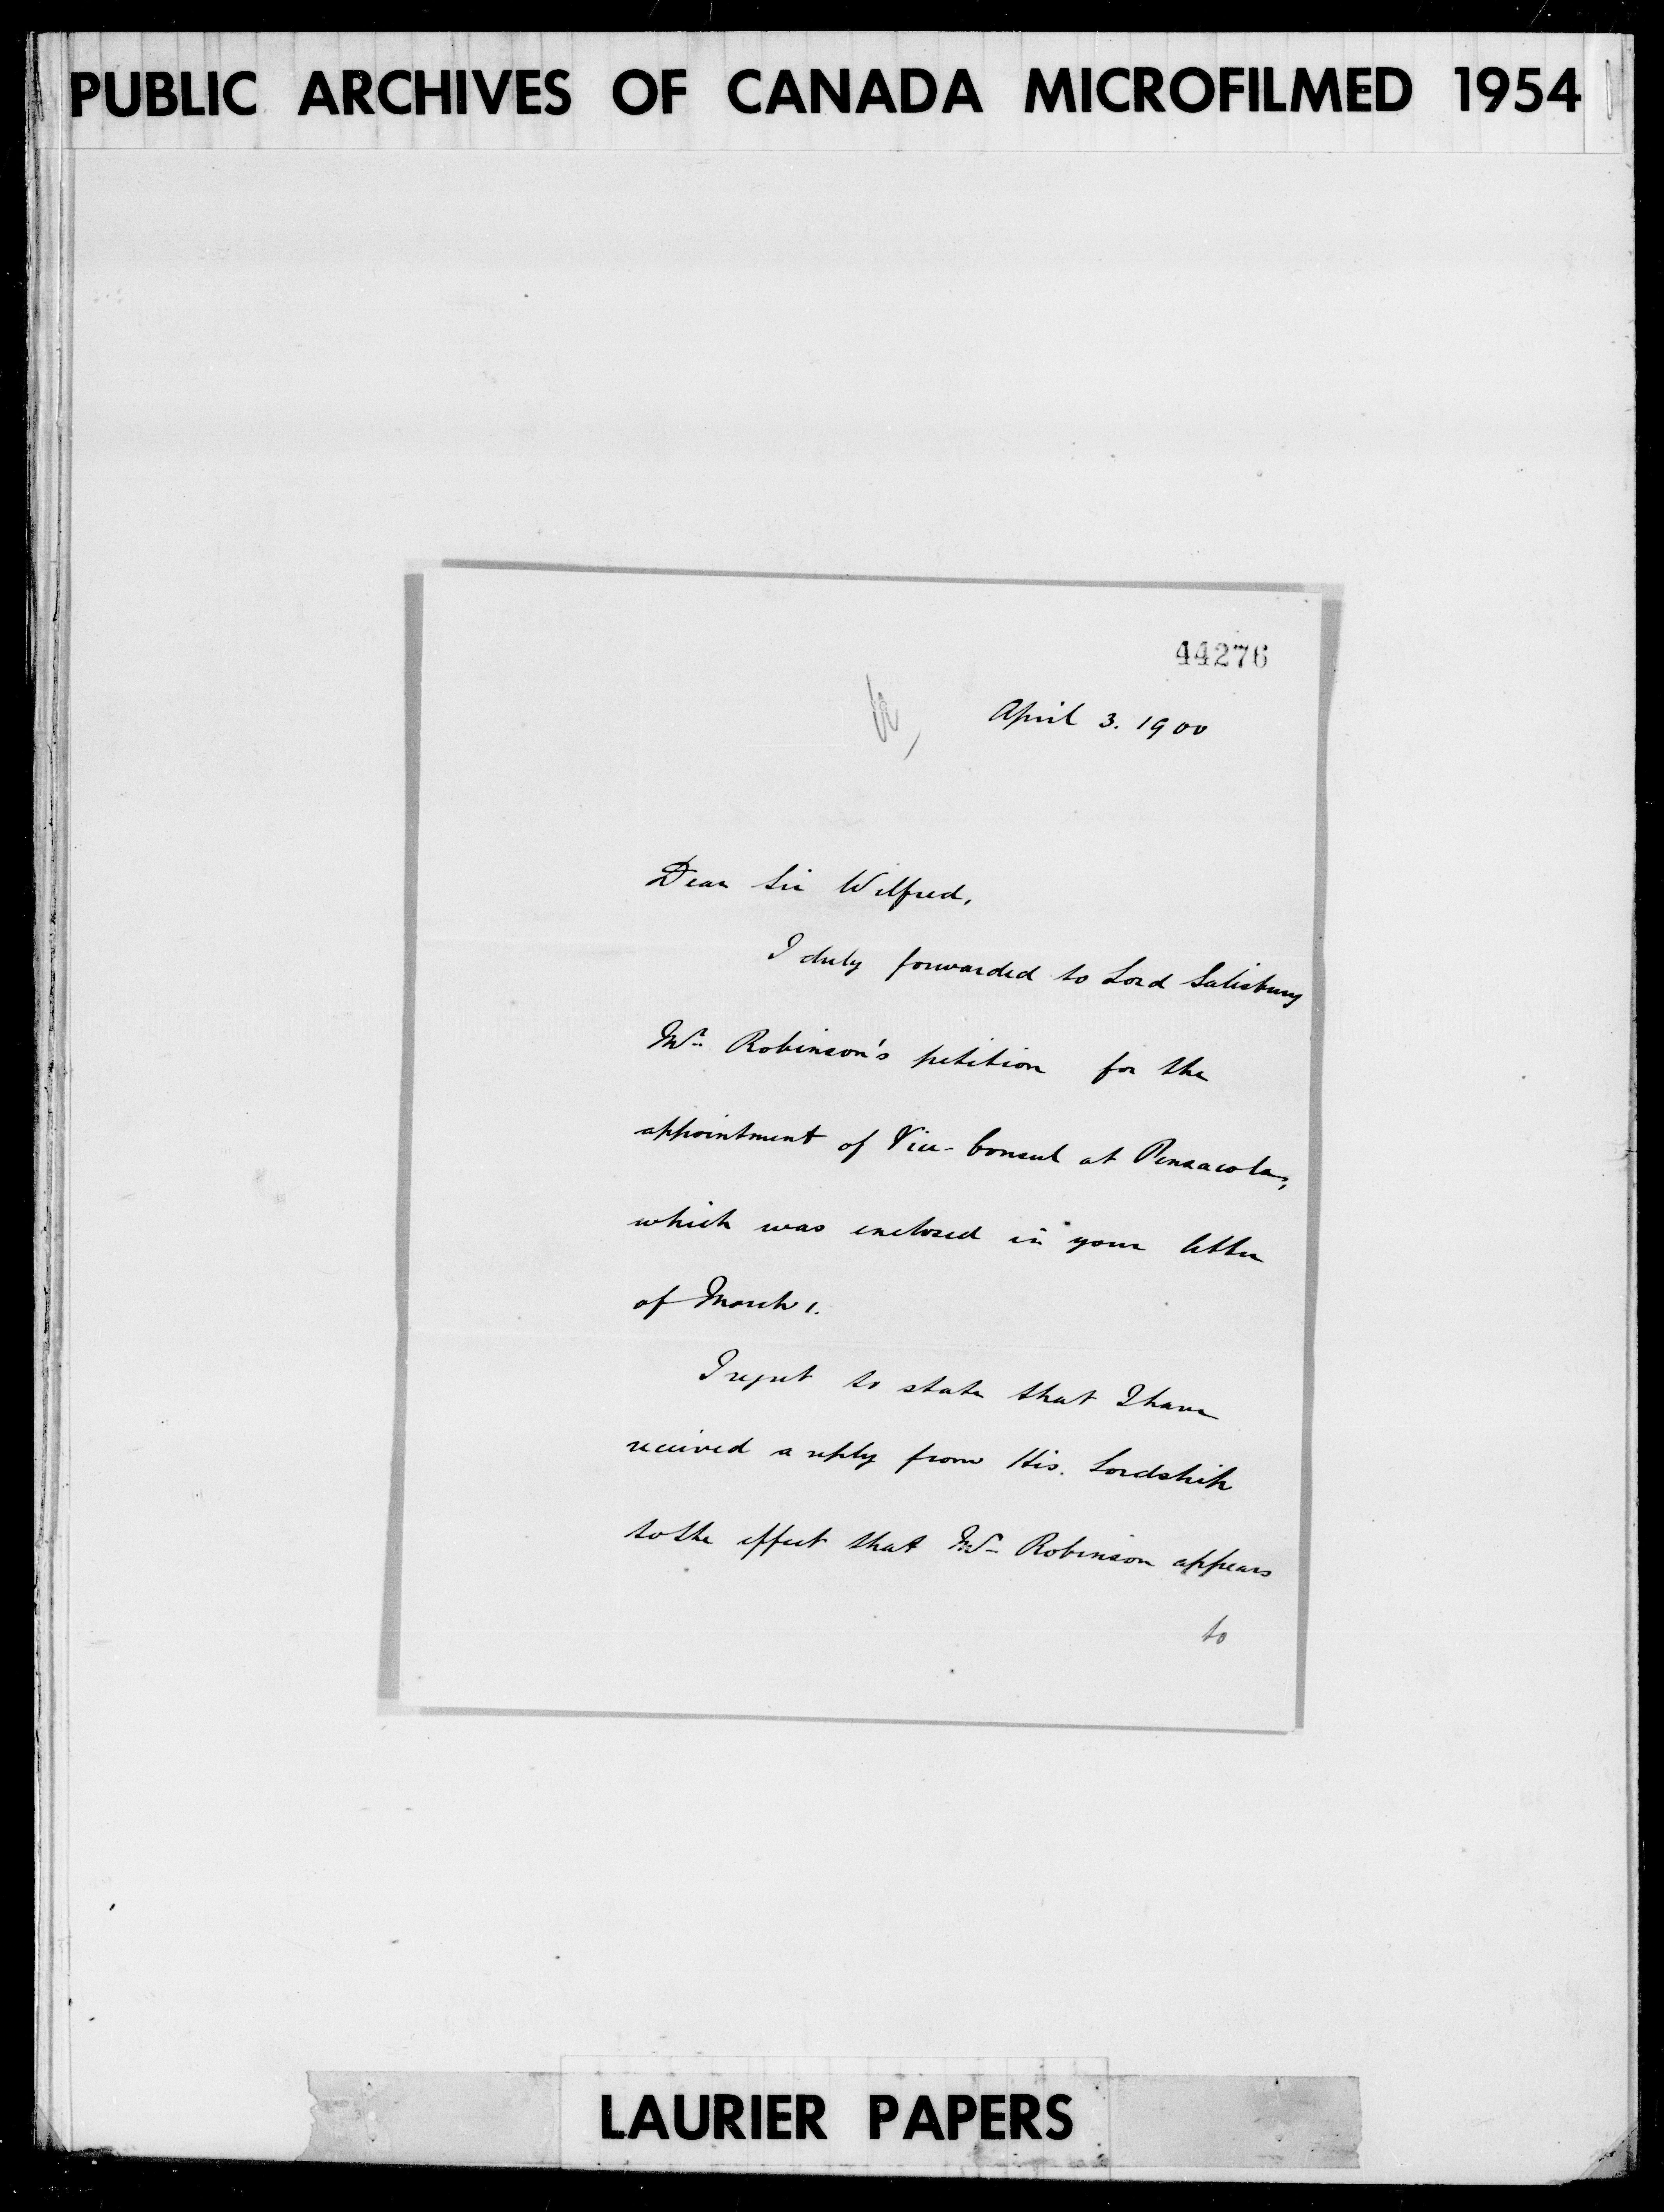 PUBLIC ARCHIVES OF CANADA MICROFILMED 1954
44276
April 3. 1900
Dear Sir Wilfred,
I duly forwarded to Lord Salisbury
Mr Robinson's petition for the
appointment of Vice-Consul at Pensacola,
which was enclosed in your letter
of March 1.
I regret to state that I have
received a reply from His Lordship
to the effect that Mr Robinson appears
to
LAURIER PAPERS